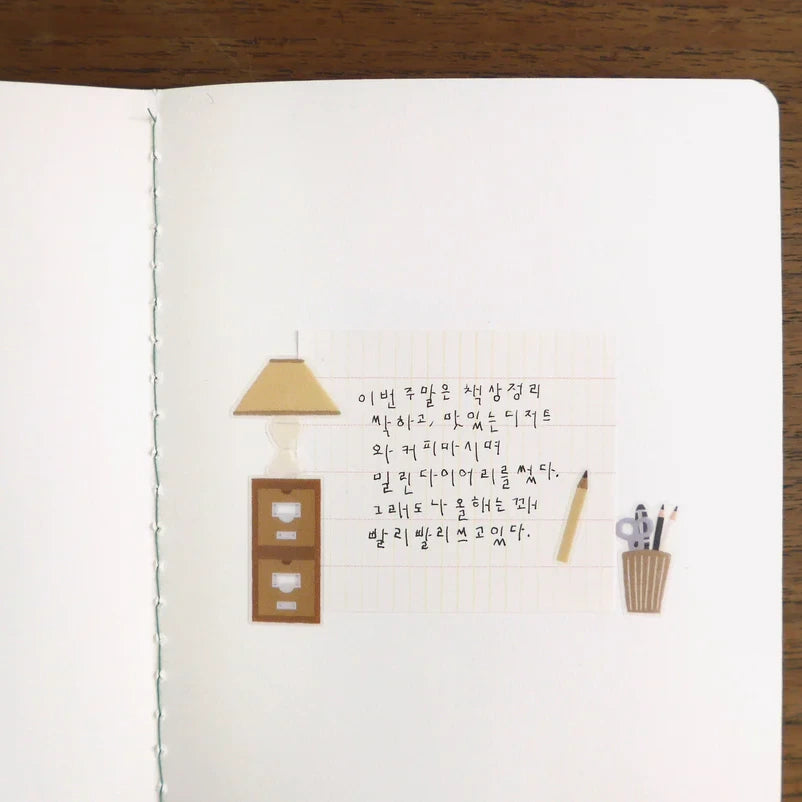 이번 주말은 책상정리
싹하고, 맛있는 디저트
와 커피마시며
밀린 다이어리를 썼다.
그래도 나 올해는 꽤
빨리빨리 쓰고있다.